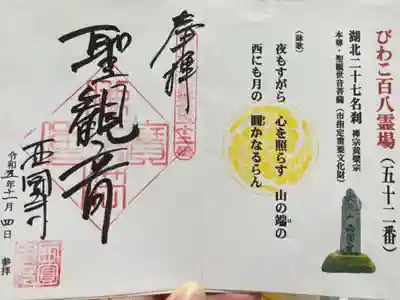 びわこ百八霊場(五十二番)
湖北二十七名刹 禅宗黄檗宗
本尊・聖観世音菩薩(市指定重要文化財)
(詠歌)
夜もすがら 心を照らす 山の端の
西にも月の 圓かなるらん
は
奉拝
聖観音
西圓寺
令和五年十一月四日 参拝